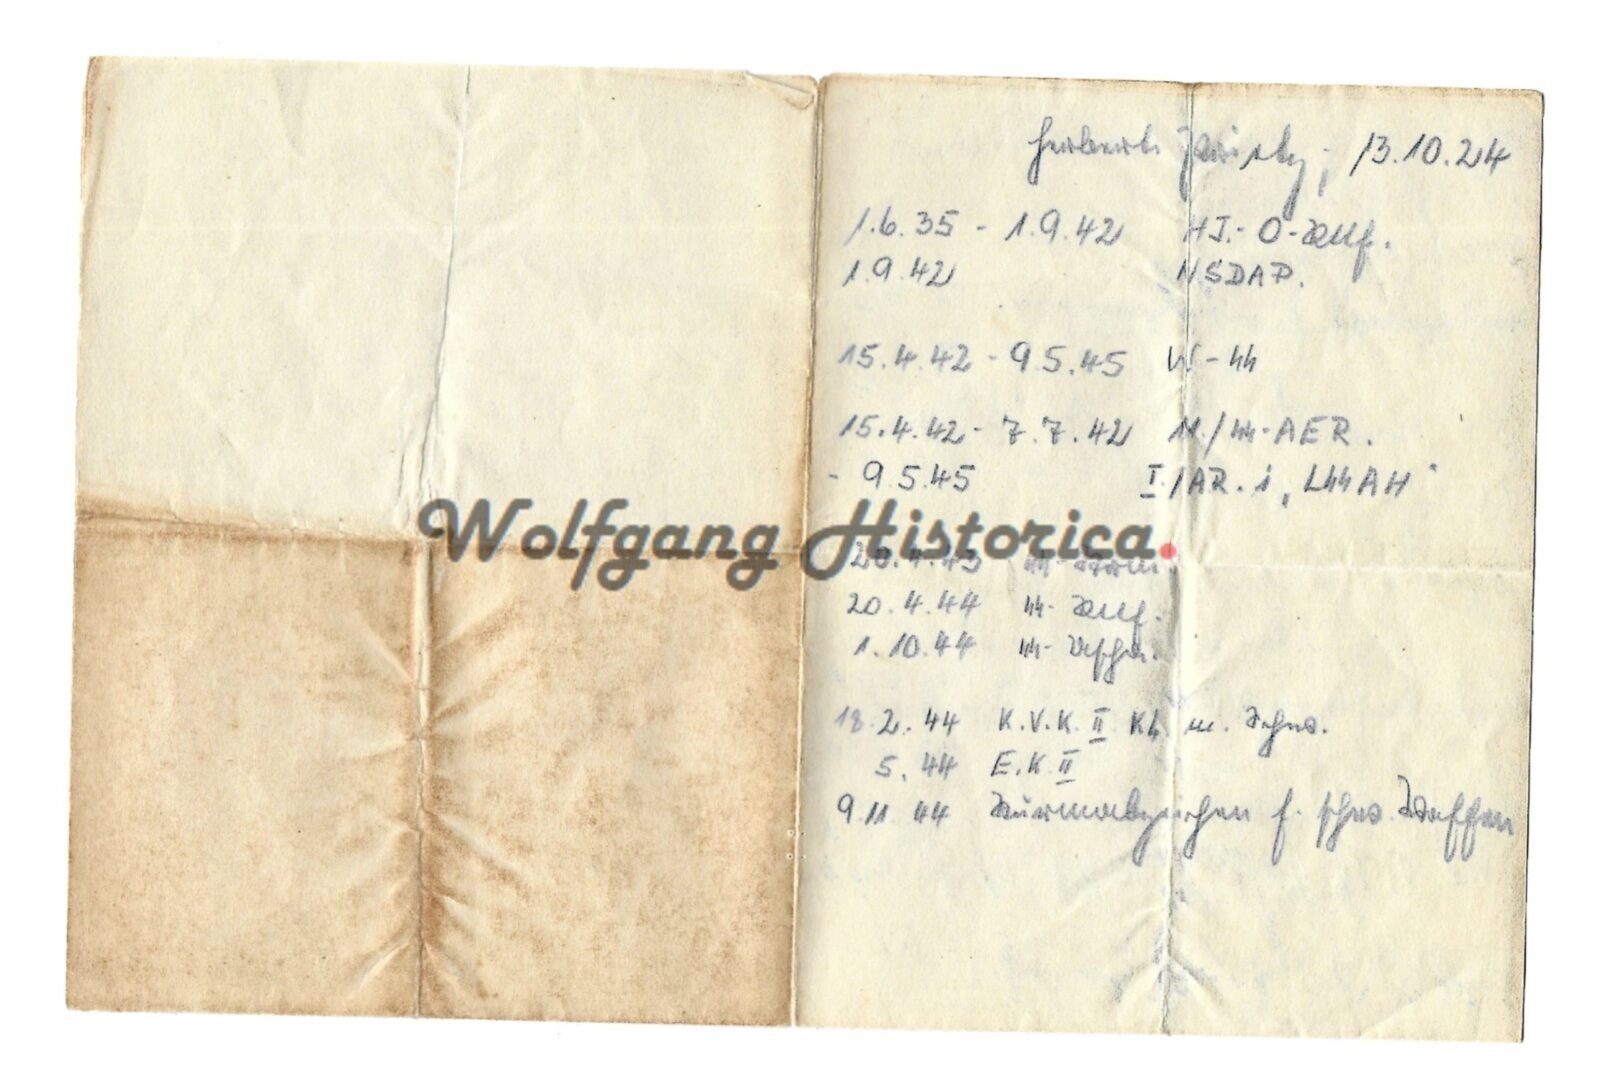 Herbert 13.10.24
1.6.35 - 1.9.42 HJ.- O-Schf.
1.9.42 NSDAP.
15.4.42 - 9.5.45 W-SS
15.4.42 - 7.7.42 11./SS-AER.
- 9.5.45 I./AR. i, LSSAH
Wolfgang Historica.
20.4.43 SS-Strm.
20.4.44 SS-
1.10.44 SS-Uscha.
18.2.44 K.V.K. II Kl. m. Schw.
5.44 E.K. II
9.11.44 Sturmabzeichen f. schw. Waffen